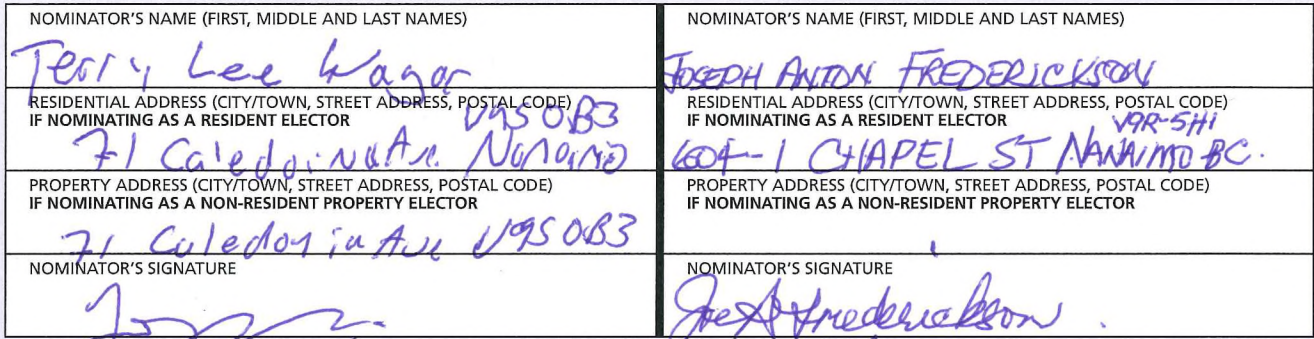 NOMINATOR'S NAME (FIRST, MIDDLE AND LAST NAMES)
Terry Lee Wagar
RESIDENTIAL ADDRESS (CITY/TOWN, STREET ADDRESS, POSTAL CODE)
IF NOMINATING AS A RESIDENT ELECTOR
V9S 0B3
71 Caledonia Ave Nanaimo
PROPERTY ADDRESS (CITY/TOWN, STREET ADDRESS, POSTAL CODE)
IF NOMINATING AS A NON-RESIDENT PROPERTY ELECTOR
71 Caledonia Ave V9S 0B3
NOMINATOR'S SIGNATURE
NOMINATOR'S NAME (FIRST, MIDDLE AND LAST NAMES)
JOSEPH ANTON FREDERICKSON
RESIDENTIAL ADDRESS (CITY/TOWN, STREET ADDRESS, POSTAL CODE)
IF NOMINATING AS A RESIDENT ELECTOR
V9R-5H1
604-1 CHAPEL ST NANAIMO BC.
PROPERTY ADDRESS (CITY/TOWN, STREET ADDRESS, POSTAL CODE)
IF NOMINATING AS A NON-RESIDENT PROPERTY ELECTOR
NOMINATOR'S SIGNATURE
Joe A Frederickson